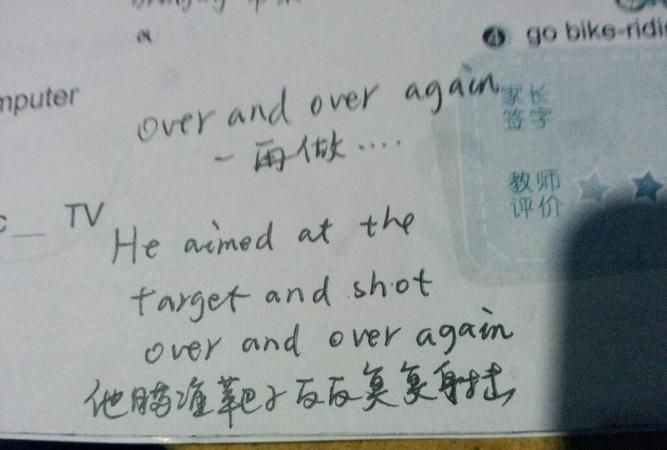 ④ go bike-ridi
mputer
over and over again
一再做....
家长
签字
教师
评价
c__ TV
He aimed at the
target and shot
over and over again
他瞄准靶子反反复复射击